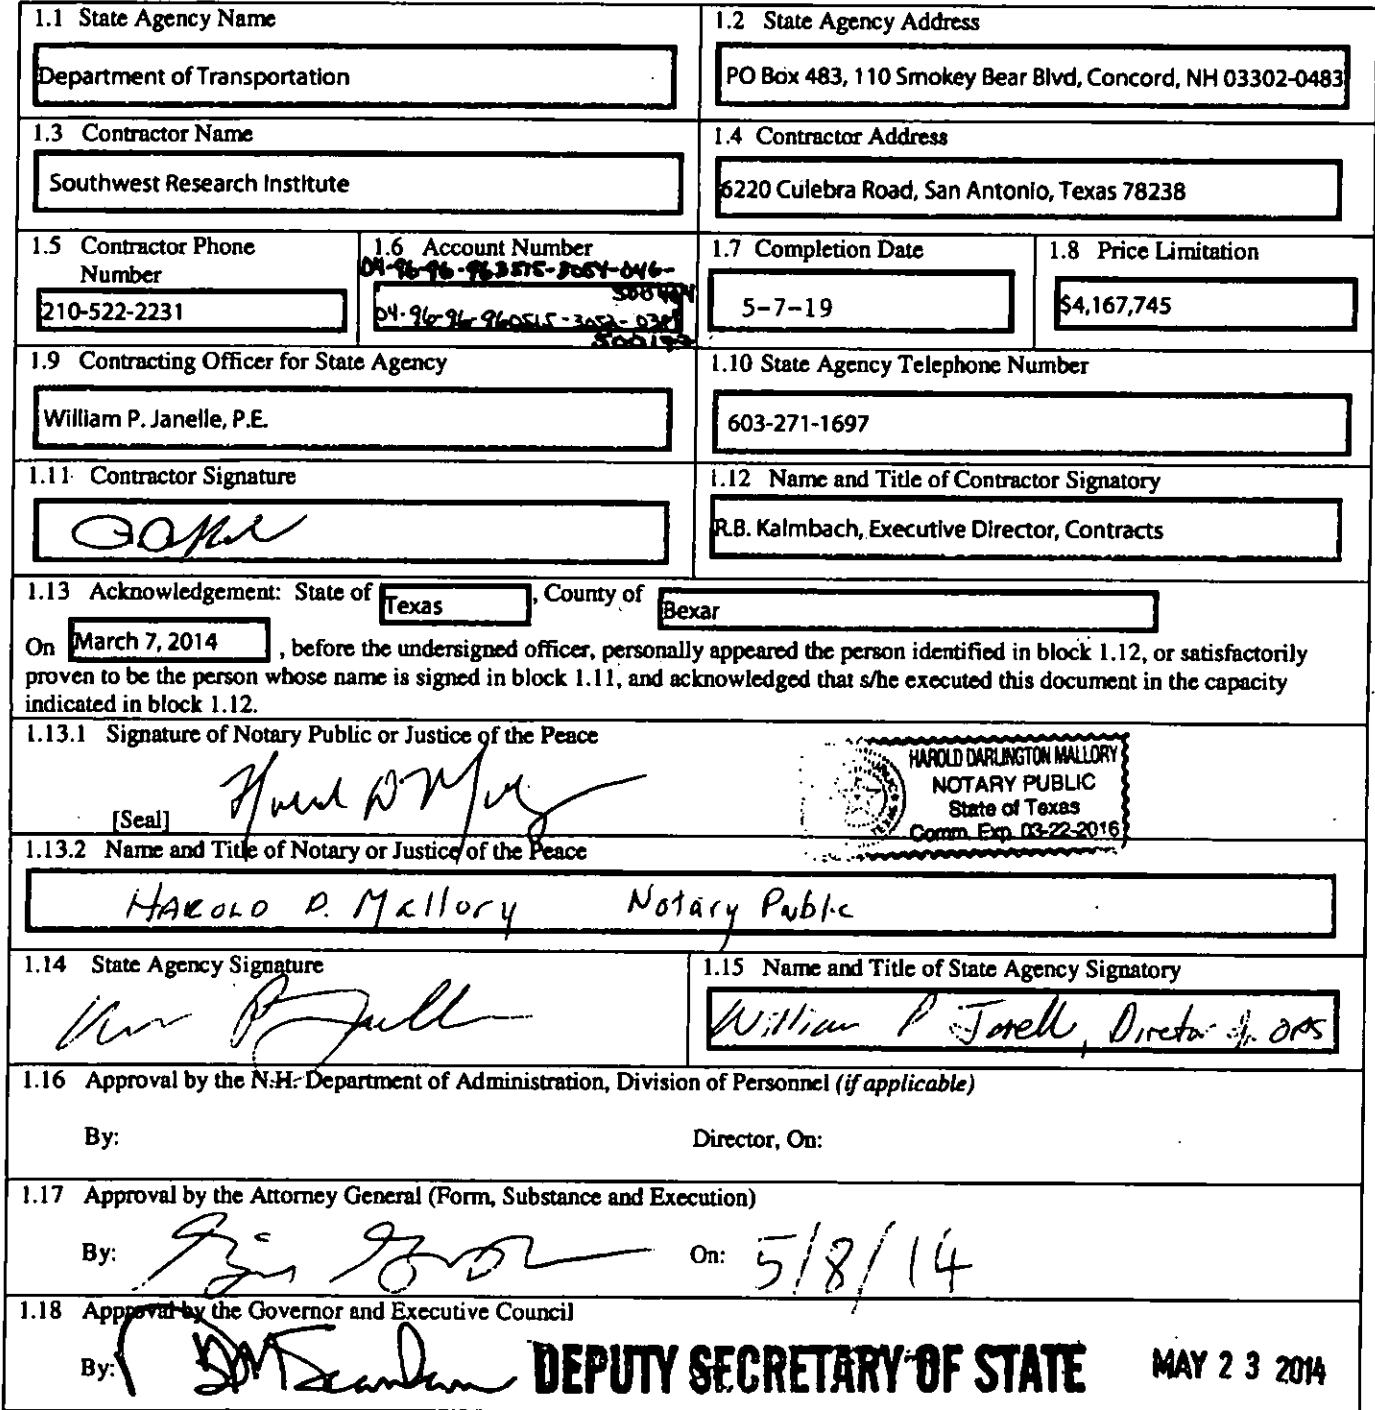 1.1 State Agency Name
Department of Transportation
1.2 State Agency Address
PO Box 483, 110 Smokey Bear Blvd, Concord, NH 03302-0483
1.3 Contractor Name
Southwest Research Institute
1.4 Contractor Address
6220 Culebra Road, San Antonio, Texas 78238
1.5 Contractor Phone
Number
210-522-2231
1.6 Account Number
04-96-96-963515-3054-046-
04-96-96-960515-3052-
1.7 Completion Date
5-7-19
1.8 Price Limitation
$4,167,745
1.9 Contracting Officer for State Agency
William P. Janelle, P.E.
1.10 State Agency Telephone Number
603-271-1697
1.11 Contractor Signature
1.12 Name and Title of Contractor Signatory
R.B. Kalmbach, Executive Director, Contracts
1.13 Acknowledgement: State of Texas, County of Bexar
On March 7, 2014, before the undersigned officer, personally appeared the person identified in block 1.12, or satisfactorily
proven to be the person whose name is signed in block 1.11, and acknowledged that s/he executed this document in the capacity
indicated in block 1.12.
1.13.1 Signature of Notary Public or Justice of the Peace
[Seal]
HAROLD DARLINGTON MALLORY
NOTARY PUBLIC
State of Texas
Comm. Exp. 03-22-2016
1.13.2 Name and Title of Notary or Justice of the Peace
HAROLD D. Mallory Notary Public
1.14 State Agency Signature
1.15 Name and Title of State Agency Signatory
William P Janelle, Director of OPS
1.16 Approval by the N.H. Department of Administration, Division of Personnel (if applicable)
By:
Director, On:
1.17 Approval by the Attorney General (Form, Substance and Execution)
By:
On: 5/8/14
1.18 Approval by the Governor and Executive Council
By:
DEPUTY SECRETARY OF STATE MAY 23 2014